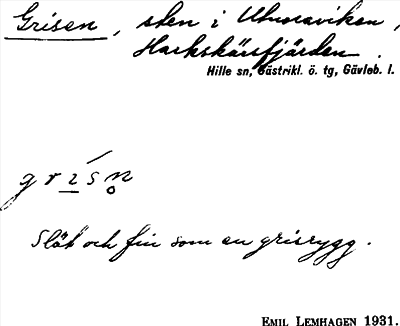 Grisen, sten i Utnoraviken,
Harkskärsfjärden.
Hille sn, Gästrikl. ö. tg, Gävleb. l.
g r ì s n̥
Slät och fin som en grisrygg.
EMIL LEMHAGEN 1931.